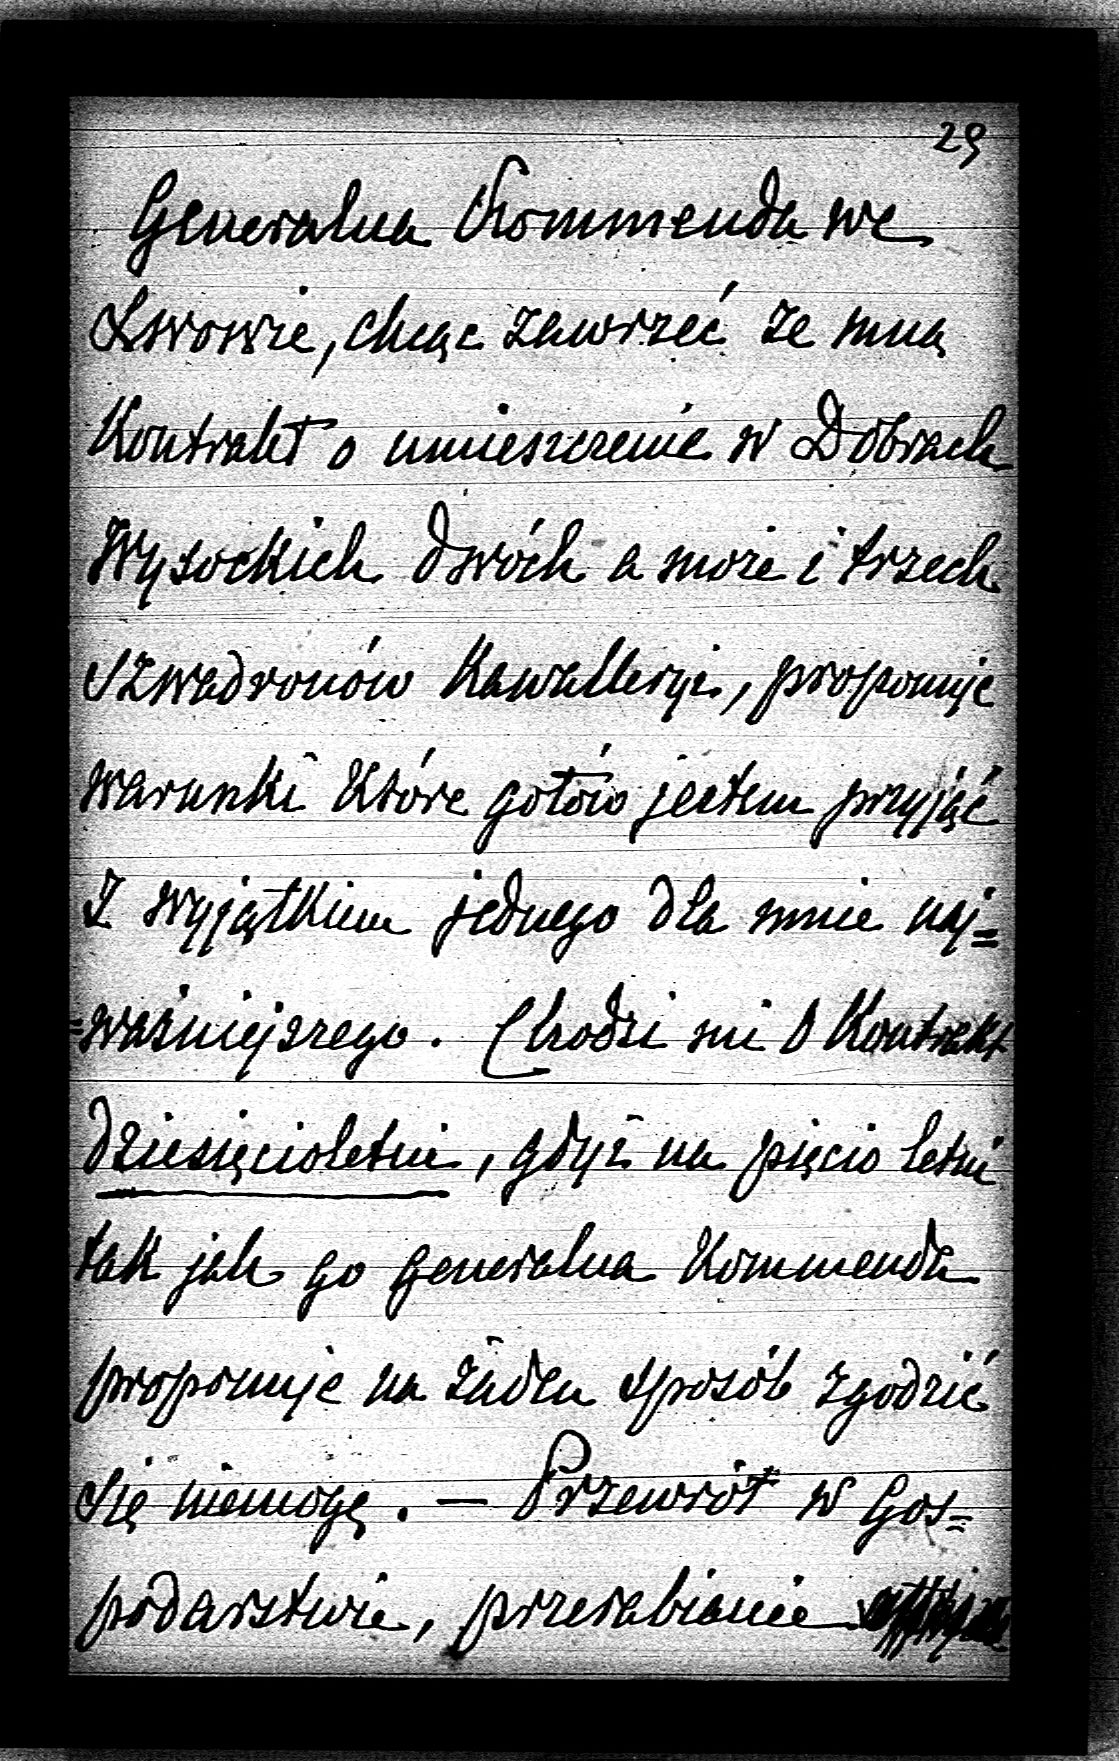 29
Generalna Kommenda we
Lwowie, chcąc zawrzeć ze mną
Kontrakt o umieszczenie w Dobrach
Wysockich dwóch a może i trzech
szwadronów Kawalleryi, proponuje
warunki które gotów jestem przyjąć
z wyjątkiem jednego dla mnie naj=
=ważniejszego. Chodzi mi o Kontrakt
dziesięcioletni, gdyż na pięcio letni
tak jak go Generalna Kommenda
proponuje na żaden sposób zgodzić
się niemogę. — Przewrót w Gos=
podarstwie, przerabianie